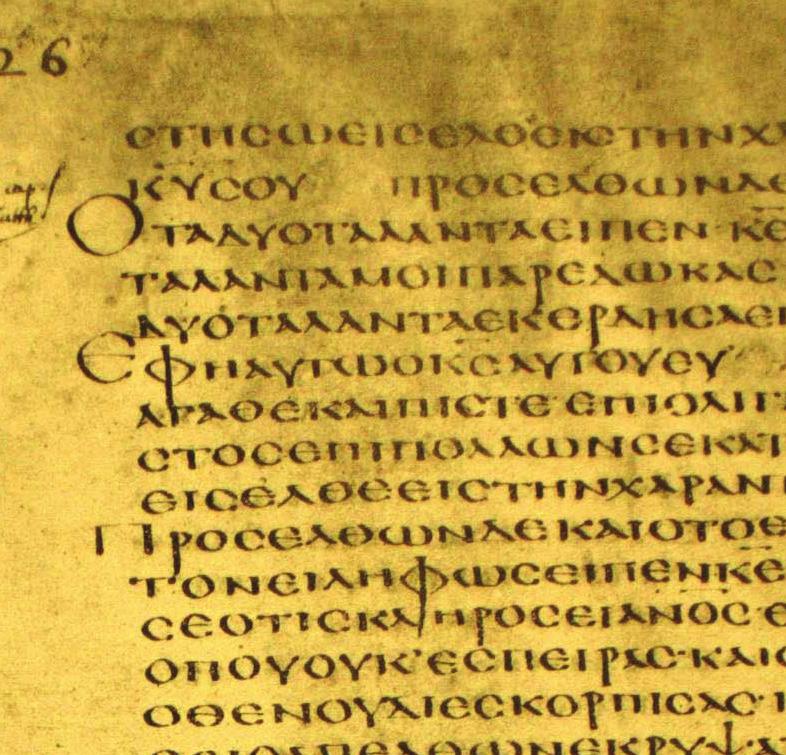 26
ϹΤΗϹΩΕΙϹΕΛΘΕΕΙϹΤΗΝΧΑ
Κ̅Υ̅ϹΟΥ ΠΡΟϹΕΛΘΩΝΔΕ
ΟΤΑΔΥΟΤΑΛΑΝΤΑΕΙΠΕΝ·Κ̅Ε̅
ΤΑΛΑΝΤΑΜΟΙΠΑΡΕΔΩΚΑϹ
ΔΥΟΤΑΛΑΝΤΑΕΚΕΡΔΗϹΑΕΠ
ΕΦΗΑΥΤΩΟΚ̅Ϲ̅ΑΥΤΟΥΕΥ
ΑΓΑΘΕΚΑΙΠΙϹΤΕ·ΕΠΙΟΛΙΓ
ϹΤΟϹΕΠΙΠΟΛΛΩΝϹΕΚΑΤ
ΕΙϹΕΛΘΕΕΙϹΤΗΝΧΑΡΑΝΤ
ΠΡΟϹΕΛΘΩΝΔΕΚΑΙΟΤΟΕ
ΤΟΝΕΙΛΗΦΩϹΕΙΠΕΝΚ̅Ε̅
ϹΕΟΤΙϹΚΛΗΡΟϹΕΙΑ̅Ν̅Ο̅Ϲ̅·Θ
ΟΠΟΥΟΥΚ'ΕϹΠΕΙΡΑϹ·ΚΑΙϹ
ΟΘΕΝΟΥΔΙΕϹΚΟΡΠΙϹΑϹ·Κ
ΑΠΕΛΘΩΝΕΚΡΥΨΑ